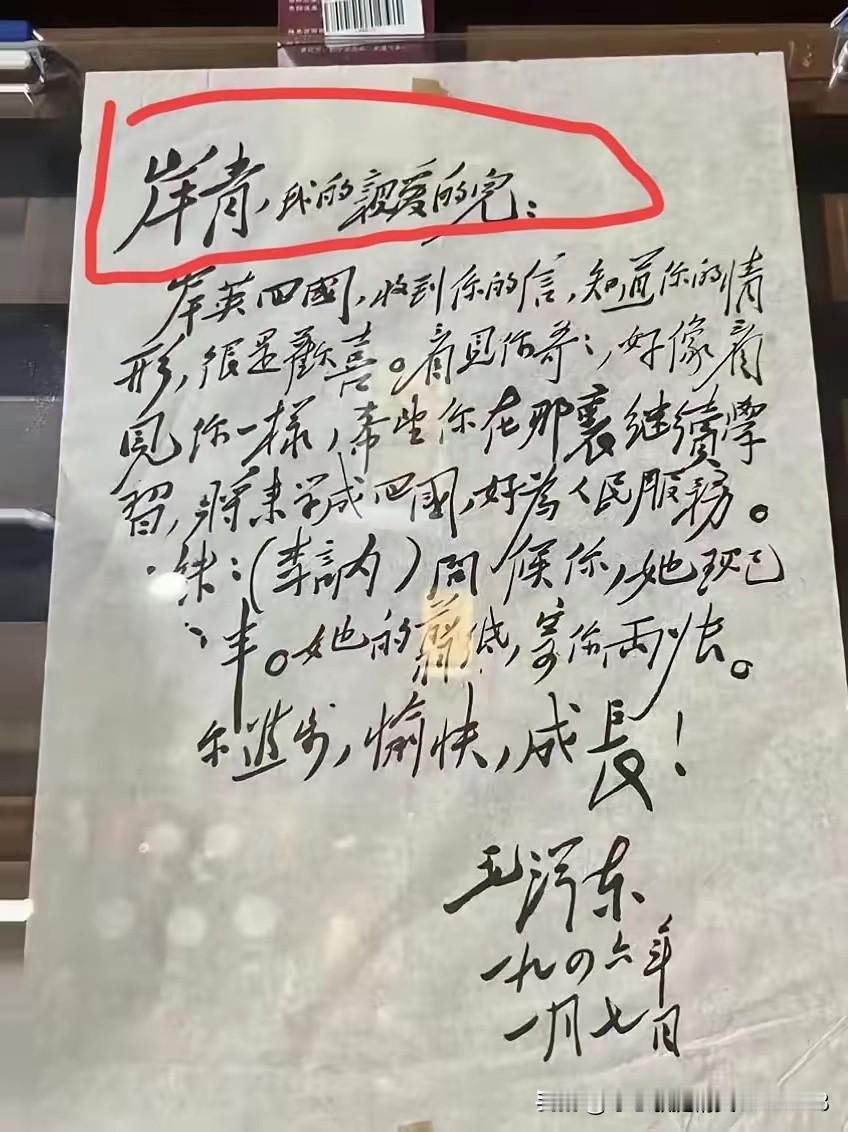 岸青，我的親爱的兒：
岸英回國，收到你的信，知道你的情
形，很是歡喜。看見你哥〻，好像看
見你一樣，希望你在那裏继續學
習，將来学成回國，好為人民服務。
妹〻（李訥）問候你，她现已
五岁半。她的剪纸，寄你两张。
你進步，愉快，成長！
毛澤东
一九四六年
一月七日